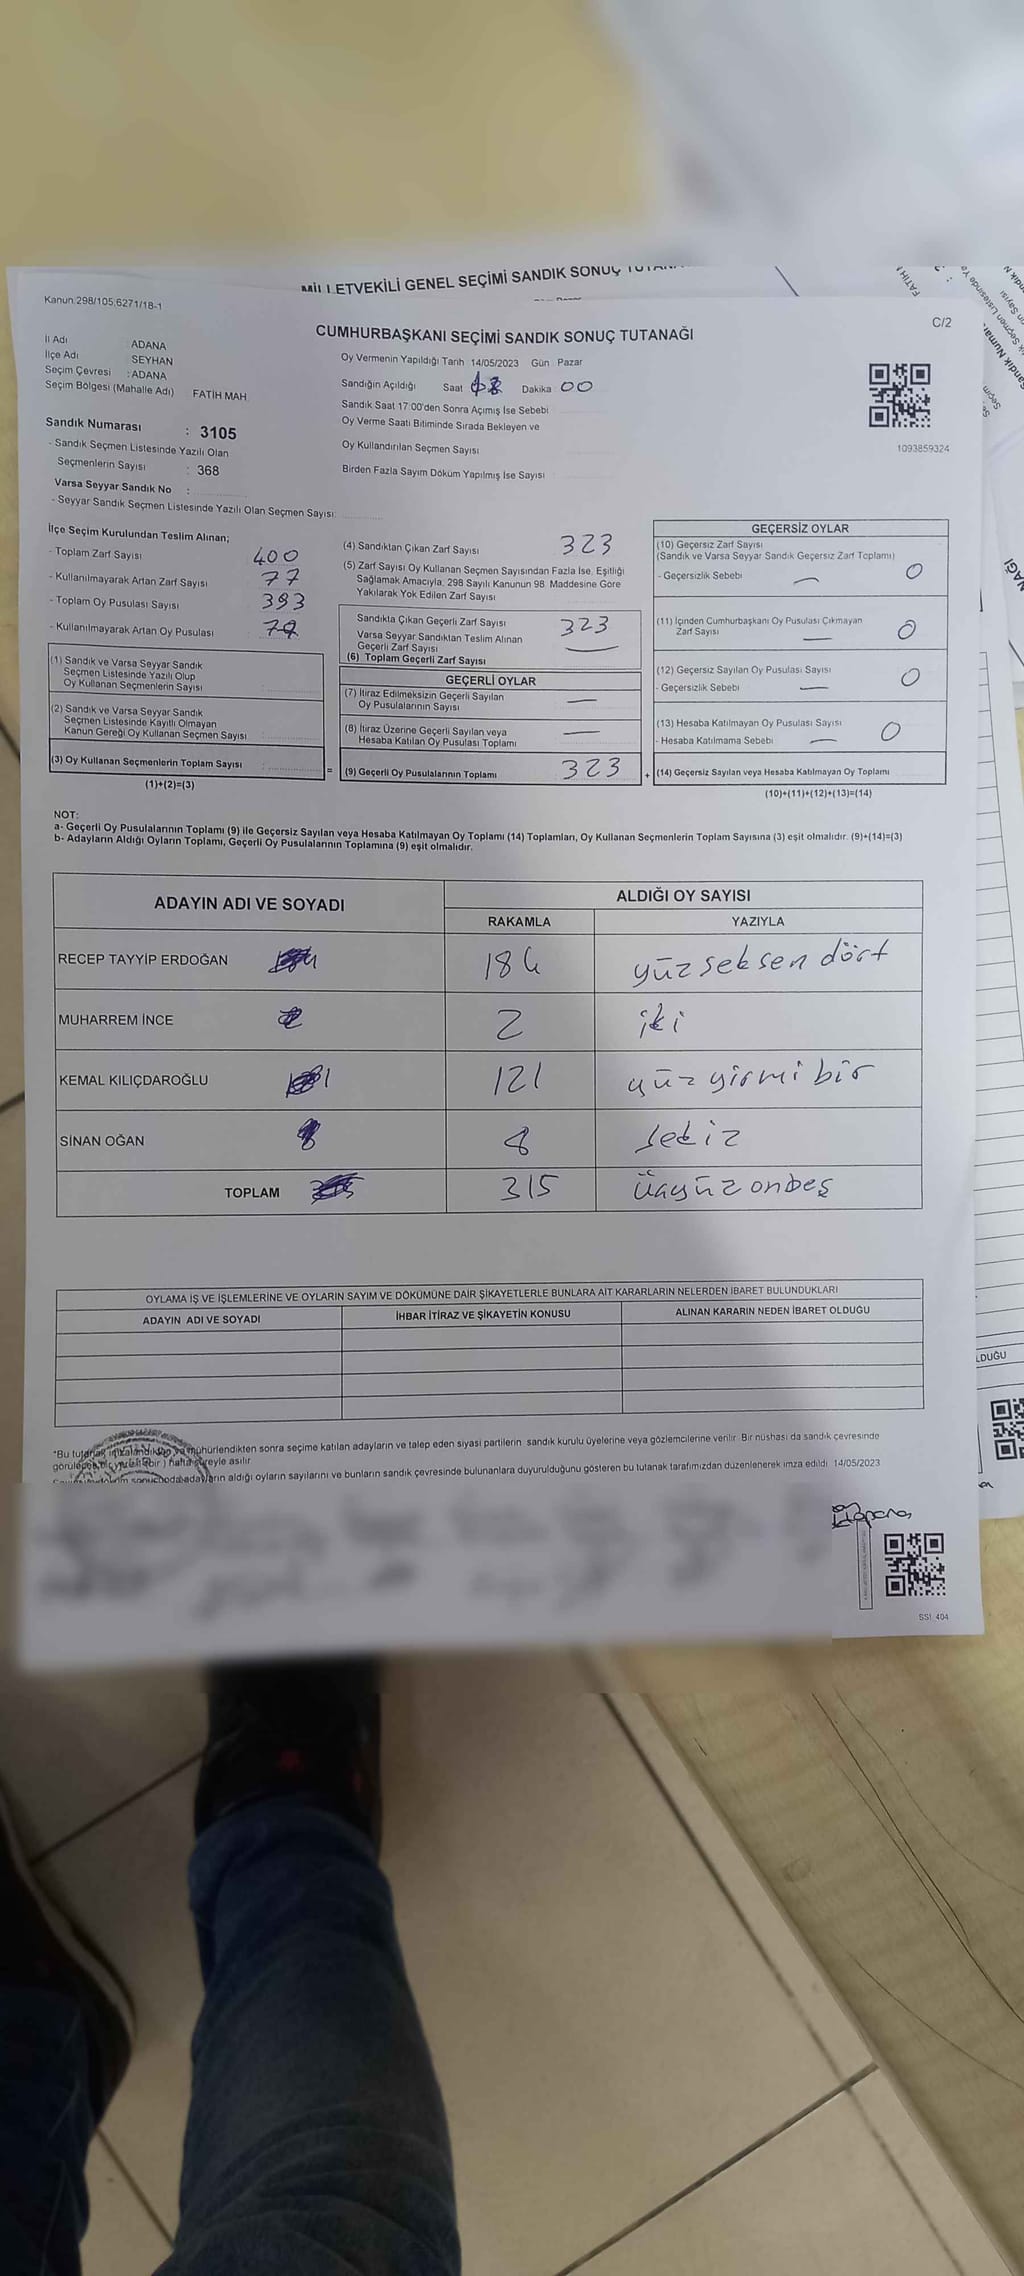 MİLLETVEKİLİ GENEL SEÇİMİ SANDIK SONUÇ
Kanun 298/105,6271/18-1
C/2
CUMHURBAŞKANI SEÇİMİ SANDIK SONUÇ TUTANAĞI
İl Adı ADANA
İlçe Adı SEYHAN
Seçim Çevresi : ADANA
Seçim Bölgesi (Mahalle Adı) FATİH MAH.
Oy Vermenin Yapıldığı Tarih 14/05/2023 Gün Pazar
Sandığın Açıldığı Saat Dakika 00
Sandık Saat 17:00'den Sonra Açımış İse Sebebi
Oy Verme Saati Bitiminde Sırada Bekleyen ve
Oy Kullandırılan Seçmen Sayısı
Birden Fazla Sayım Döküm Yapılmış İse Sayısı
1093859324
Sandık Numarası : 3105
- Sandık Seçmen Listesinde Yazılı Olan
Seçmenlerin Sayısı : 368
Varsa Seyyar Sandık No :
- Seyyar Sandık Seçmen Listesinde Yazılı Olan Seçmen Sayısı:
İlçe Seçim Kurulundan Teslim Alınan;
- Toplam Zarf Sayısı 400
- Kullanılmayarak Artan Zarf Sayısı 77
- Toplam Oy Pusulası Sayısı 393
- Kullanılmayarak Artan Oy Pusulası
(1) Sandık ve Varsa Seyyar Sandık
Seçmen Listesinde Yazılı Olup
Oy Kullanan Seçmenlerin Sayısı :
(2) Sandık ve Varsa Seyyar Sandık
Seçmen Listesinde Kayıtlı Olmayan
Kanun Gereği Oy Kullanan Seçmen Sayısı :
(3) Oy Kullanan Seçmenlerin Toplam Sayısı :
(1)+(2)=(3)
(4) Sandıktan Çıkan Zarf Sayısı 323
(5) Zarf Sayısı Oy Kullanan Seçmen Sayısından Fazla İse, Eşitliği
Sağlamak Amacıyla, 298 Sayılı Kanunun 98. Maddesine Göre
Yakılarak Yok Edilen Zarf Sayısı
Sandıkta Çıkan Geçerli Zarf Sayısı 323
Varsa Seyyar Sandıktan Teslim Alınan
Geçerli Zarf Sayısı —
(6) Toplam Geçerli Zarf Sayısı
GEÇERLİ OYLAR
(7) İtiraz Edilmeksizin Geçerli Sayılan
Oy Pusulalarının Sayısı —
(8) İtiraz Üzerine Geçerli Sayılan veya
Hesaba Katılan Oy Pusulası Toplamı —
= (9) Geçerli Oy Pusulalarının Toplamı 323 +
GEÇERSİZ OYLAR
(10) Geçersiz Zarf Sayısı
(Sandık ve Varsa Seyyar Sandık Geçersiz Zarf Toplamı)
- Geçersizlik Sebebi — 0
(11) İçinden Cumhurbaşkanı Oy Pusulası Çıkmayan
Zarf Sayısı — 0
(12) Geçersiz Sayılan Oy Pusulası Sayısı
- Geçersizlik Sebebi — 0
(13) Hesaba Katılmayan Oy Pusulası Sayısı
- Hesaba Katılmama Sebebi — 0
(14) Geçersiz Sayılan veya Hesaba Katılmayan Oy Toplamı
(10)+(11)+(12)+(13)=(14)
NOT:
a- Geçerli Oy Pusulalarının Toplamı (9) ile Geçersiz Sayılan veya Hesaba Katılmayan Oy Toplamı (14) Toplamları, Oy Kullanan Seçmenlerin Toplam Sayısına (3) eşit olmalıdır. (9)+(14)=(3)
b- Adayların Aldığı Oyların Toplamı, Geçerli Oy Pusulalarının Toplamına (9) eşit olmalıdır.
ADAYIN ADI VE SOYADI ALDIĞI OY SAYISI
RAKAMLA YAZIYLA
RECEP TAYYİP ERDOĞAN 184 yüzseksen dört
MUHARREM İNCE 2 iki
KEMAL KILIÇDAROĞLU 121 yüz yirmi bir
SİNAN OĞAN 8 sekiz
TOPLAM 315 üçyüz onbeş
OYLAMA İŞ VE İŞLEMLERİNE VE OYLARIN SAYIM VE DÖKÜMÜNE DAİR ŞİKAYETLERLE BUNLARA AİT KARARLARIN NELERDEN İBARET BULUNDUKLARI
ADAYIN ADI VE SOYADI İHBAR İTİRAZ VE ŞİKAYETİN KONUSU ALINAN KARARIN NEDEN İBARET OLDUĞU
*Bu tutanak imzalandıktan ve mühürlendikten sonra seçime katılan adayların ve talep eden siyasi partilerin sandık kurulu üyelerine veya gözlemcilerine verilir. Bir nüshası da sandık çevresinde
asılır
adayların aldığı oyların sayılarını ve bunların sandık çevresinde bulunanlara duyurulduğunu gösteren bu tutanak tarafımızdan düzenlenerek imza edildi. 14/05/2023
SSI: 404
LDUĞU